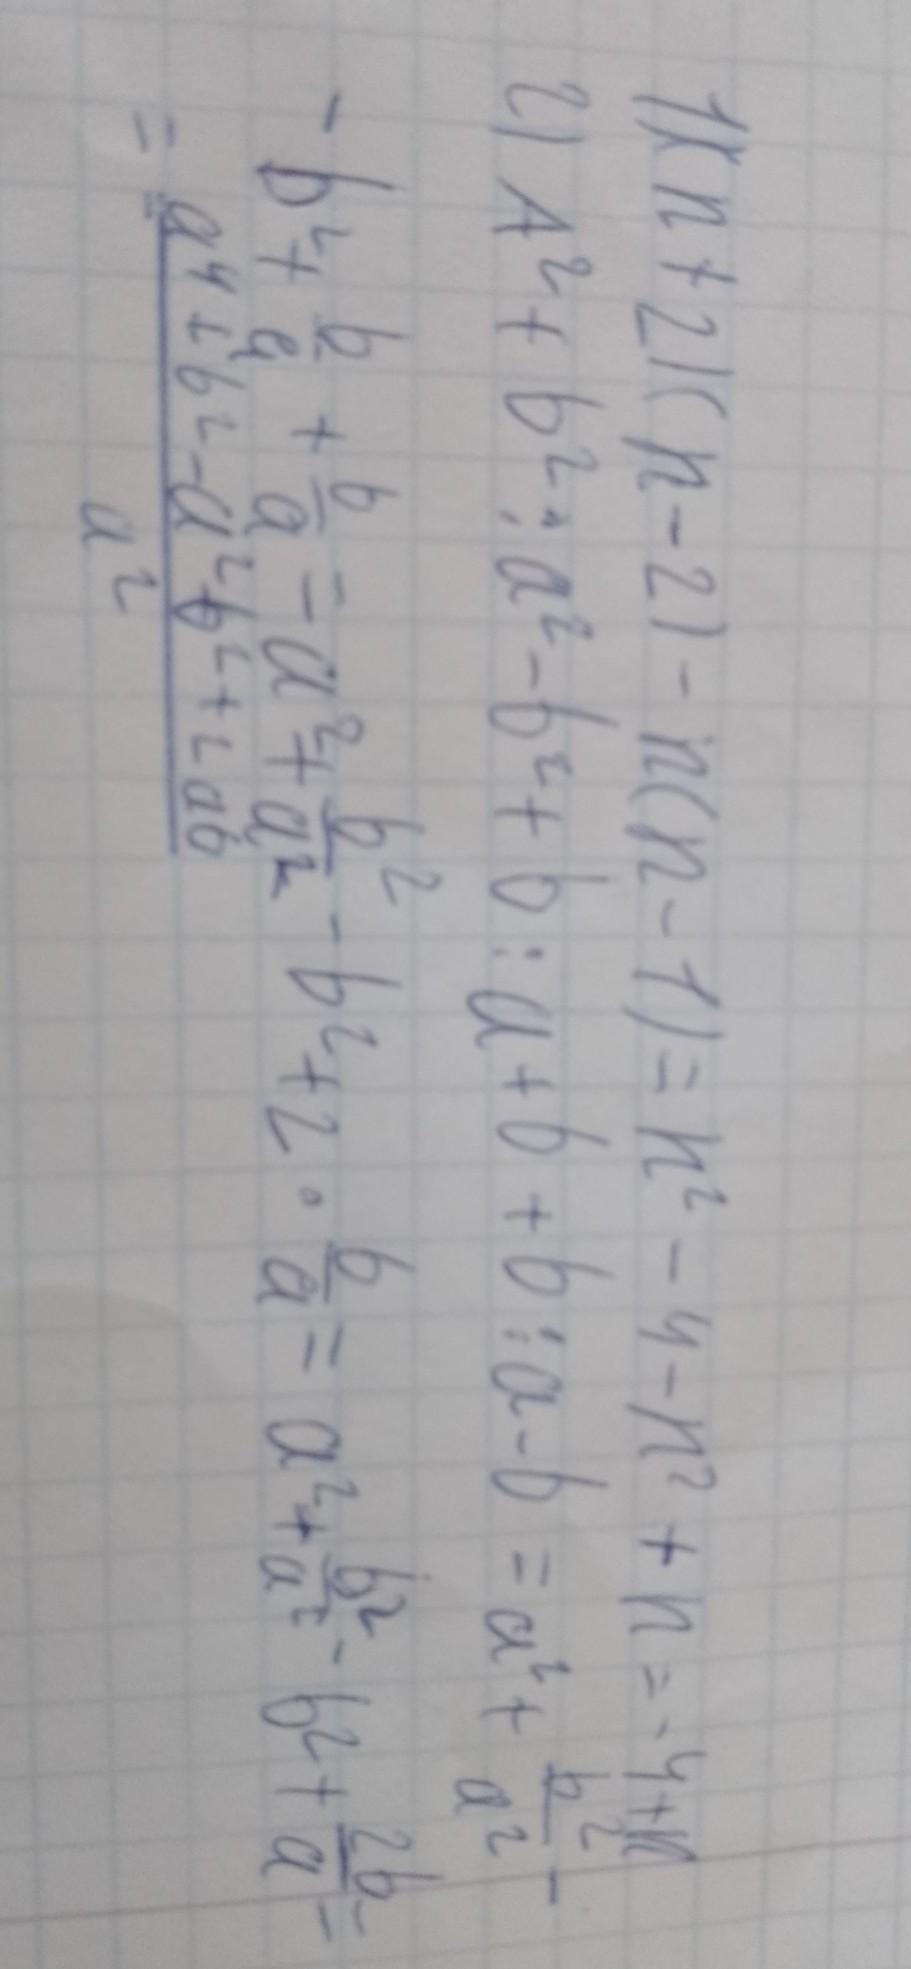 1)(n+2)(n-2)-n(n-1)=n²-4-n²+n=-4+n
2) A²+b²:a²-b²+b:a+b+b:a-b=a²+b²/a²-
-b²+b/a+b/a=a²+b²/a²-b²+2·b/a=a²+b²/a²-b²+2b/a=
=a⁴+b²-a²b²+2ab/a²